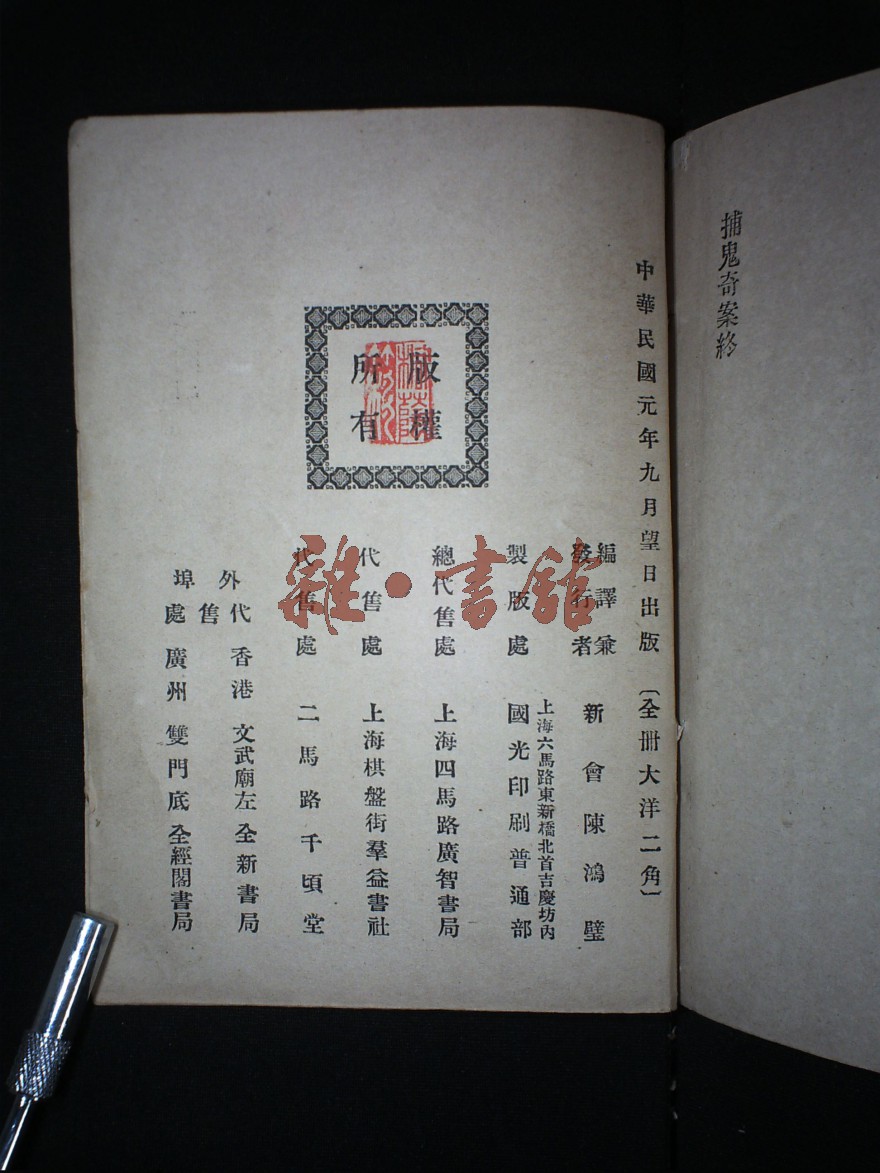 捕鬼奇案終
中華民國元年九月望日出版 〔全冊大洋二角〕
版權
所有
編譯兼
發行者 新會陳鴻璧
上海六馬路東新橋北首吉慶坊內
製版處 國光印刷普通部
總代售處 上海四馬路廣智書局
代售處 上海棋盤街羣益書社
代售處 二馬路千頃堂
外埠代售處
香港 文武廟左 全新書局
廣州 雙門底 全經閣書局
雜·書館